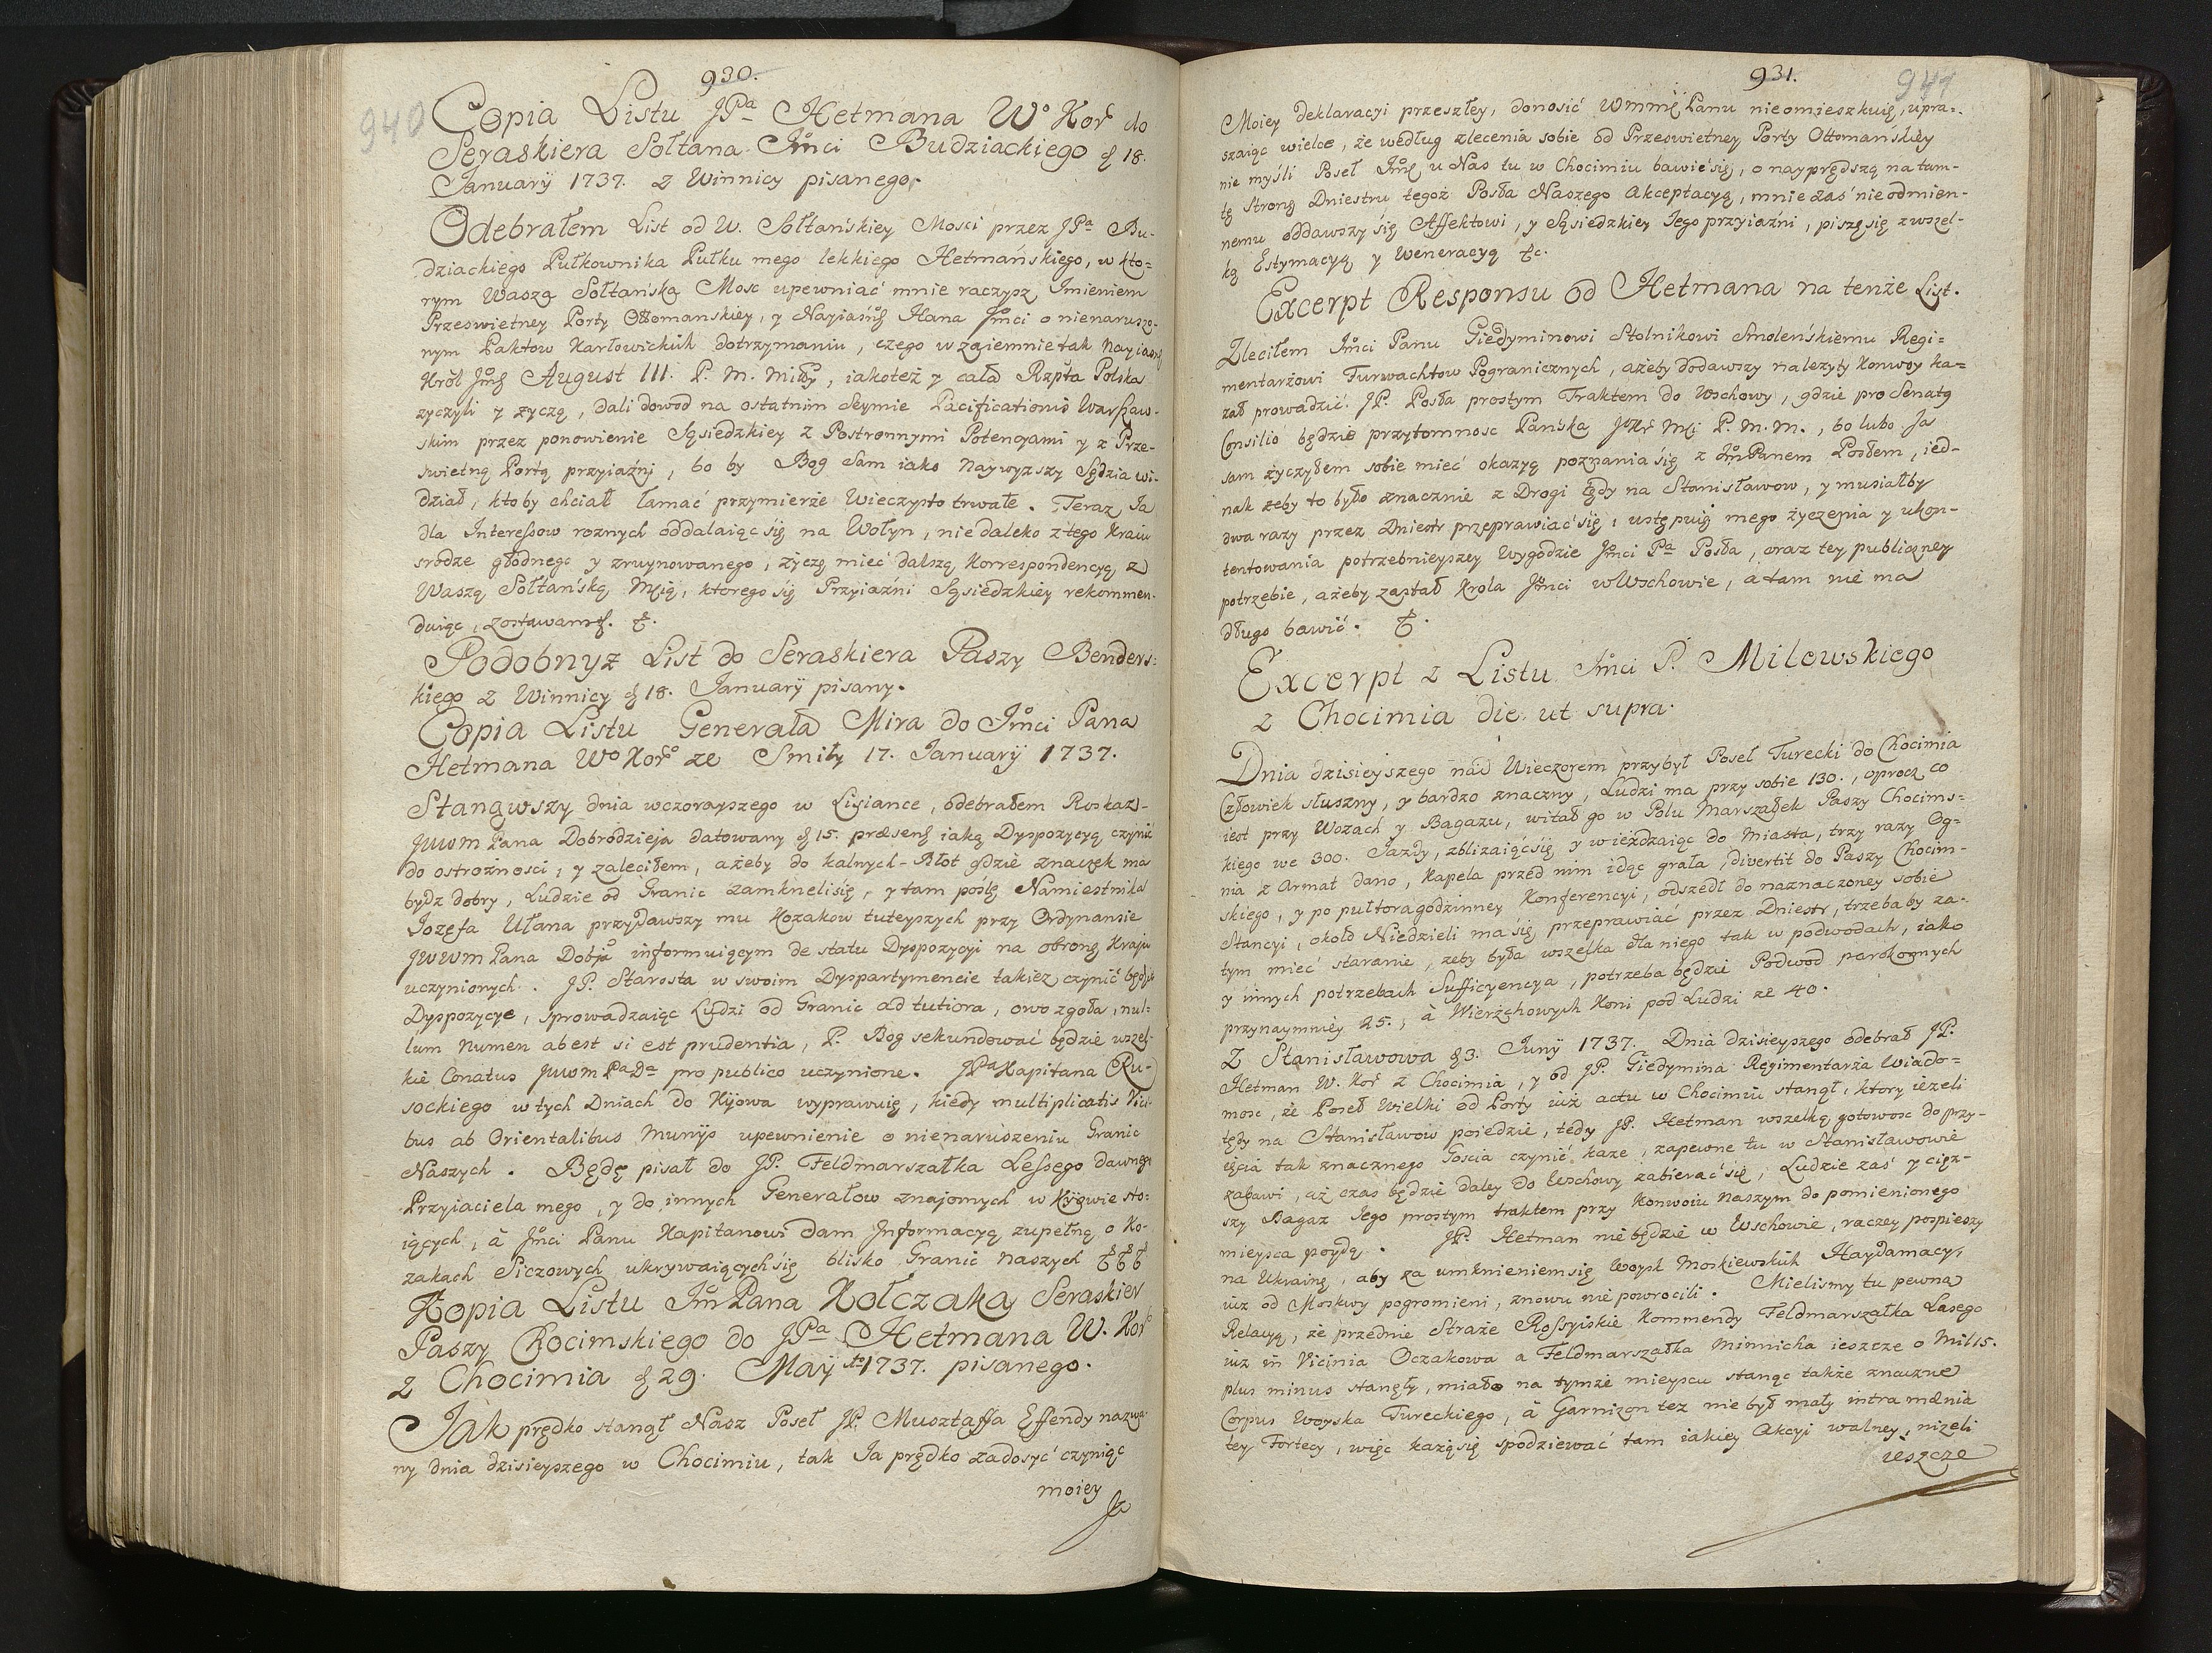 930.
940
Copia Listu JPa Hetmana Wo Kor do
Seraskiera Sołtana Jmci Budziackiego d 18.
Januarÿ 1737. z Winnicy pisanego.
Odebrałem List od W. Sołtańskiey Mosci przez JPa Bu-
dziackiego Pułkownika Pułku mego lekkiego Hetmańskiego, w kto=
rym Waszą Sołtańską Mosc upewniać mnie raczysz Imieniem
Przeswietney Porty Ottomanskiey, y Nayiaśń Hana Jmci o nienaruszo-
nym Paktow Karłowickich dotrzymaniu, czego wzaiemnie tak Nayiasń
Krol Jmć August III. P. M. Miłły, iakoteż y cała Rzpta Polska
zyczyli y zyczą, dali dowod na ostatnim Seymie Pacificationis Warszaw-
skim przez ponowienie Sąsiedzkiey z Postronnymi Potencyami y z Prze-
swietną Portą przyiaźni, bo by Bog sam iako Naywyzszy Sędzia wi-
dział, ktoby chciał łamać przymierże Wieczysto trwałe. Teraz Ja
dla Interessow roznych oddalaiąc się na Wołyn, niedaleko z tego Kraiu
srodze głodnego y zruynowanego, życzę mieć dalszą Korrespondencyą z
Waszą Sołtańską Mcią, ktorego się Przyiaźni Sąsiedzkiey rekommen-
duiąc, zostawam &. &.
Podobnyż List do Seraskiera Paszy Benders=
kiego z Winnicy d 18. Januarÿ pisany.
Copia Listu Generała Mira do Jmci Pana
Hetmana Wo Koro ze Smiły 17. Januarÿ 1737.
Stanąwszy dnia wczorayszego w Lisiance, odebrałem Roskaz
JWWM Pana Dobrodzieja datowany d 15. præsens iaką Dyspozycyą czynić
do ostrożnosci, y zaleciłem, ażeby do kalnych-Błot gdzie znaczek ma
bydz dobry, Ludzie od Granic zamkneli się, y tam poślę Namiestnika
Jozefa Ułana przydawszy mu Kozakow tuteyszych przy Ordynansie
JWWM Pana Dobja informuiącym de statu Dyspozycyi na obronę Kraju
uczynionych. JP. Starosta w swoim Dyspartymencie takiez czynić będzie
Dyspozycye, sprowadzaiąc Ludzi od Granic ad tutiora, owo zgoła, nul=
lum Numen abest si est prudentia, P. Bog sekundować będzie wszel-
kie Conatus JWWM PaDa pro publico uczynione. JPa Kapitana Ru-
sockiego w tych Dniach do Kijowa wyprawuię, kiedy multiplicatis Vici-
bus ab Orientalibus Munijs upewnienie o nienaruszeniu Granic
Naszych. Będę pisał do JP. Feldmarszałka Lessego dawnego
Przyiaciela mego, y do innych Generałow znajomych w Kijowie sto=
iących, à Jmci Panu Kapitanowi dam Informacyą zupełną o Ko-
zakach Siczowych ukrywaiących się blisko Granic Naszych &&&
Kopia Listu Jm Pana Kołczaka Seraskier
Paszy Chocimskiego do JPa Hetmana W. Kor
z Chocimia d 29. Maÿ 1737. pisanego.
Jak prędko stanął Nasz Poseł JP. Musztaffa Effendy nazwa-
ny dnia dzisieyszego w Chocimiu, tak Ja prędko zadosyć czyniąc
moiey
931.
941
Moiey deklaracyi przeszłey, donosić WmmęPanu nieomieszkuię, upra-
szaiąc wielce, że według zlecenia sobie od Przeswietney Porty Ottomańskiey
nie myśli Poseł Jmć u Nas tu w Chocimiu bawić się, o nayprędszą na tam-
tę Stronę Dniestru tegoż Posła Naszego akceptacyą, mnie zaś nieodmien-
nemu oddawszy się Affektowi, y Sąsiedzkiey Jego przyiaźni, piszę się z wszel-
ką Estymacyą y Weneracyą &c.
Excerpt Responsu od Hetmana na tenże List.
Zleciłem Jmci Panu Giedyminowi Stolnikowi Smoleńskiemu Regi=
mentarżowi Furwachtow Pogranicznych, ażeby dodawszy nalezyty Konwoy ka=
zał prowadzić JP. Posła prostym Traktem do Wschowy, gdzie pro Senatu
Consilio będzie przytomnosc Pańska JKr Mci P. M. M., bo lubo Ja
sam życzyłem sobie mieć okazyą poznania się z Jm Panem Posłem, ied-
nak żeby to było znacznie z Drogi tędy na Stanisławow, y musiałby
dwa razy przez Dniestr przeprawiać się, ustępuię mego życzenia y ukon-
tentowania potrzebnieyszey Wygodzie Jmci Pa Posła, oraz tey publiczney
potrzebie, ażeby zastał Krola Jmci w Wschowie, a tam nie ma
długo bawić. &.
Excerpt z Listu Jmci P. Milewskiego
z Chocimia die ut supra.
Dnia dzisieyszego nad Wieczorem przybył Poseł Turecki do Chocimia
Człowiek słuszny, y bardzo znaczny, Ludzi ma przy sobie 130., oprocz co
iest przy Wozach y Bagazu, witał go w Polu Marszałek Paszy Chocims=
kiego we 300. Jazdy, zblizaiąc się y wieżdzaiąc do Miasta, trzy razy Og=
nia z Armat dano, Kapela przed nim idąc grała, divertit do Paszy Chocim-
skiego, y po pułtoragodzinney Konferencyi, odszedł do naznaczoney sobie
Stancyi, około Niedzieli ma się przeprawiać przez Dniestr, trzebaby za-
tym mieć staranie, zeby była wszelka dla niego tak w podwodach, iako
y innych potrzebach Sufficyencya, potrzeba będzie Podwod parokonnych
przynaymniey 25., à Wierżchowych Koni pod Ludzi ze 40.
Z Stanisławowa d 3. Junÿ 1737. Dnia dzisieyszego odebrał JP.
Hetman W. Kor z Chocimia, y od JP. Giedymina Regimentarża Wiado=
mosc, że Poseł Wielki od Porty iuż actu w Chocimiu stanął, ktory ieżeli
tędy na Stanisławow poiedzie, tedy JP. Hetman wszelką gotowosc do przy-
ięcia tak znacznego Goscia czynić kaze, zapewne tu w Stanisławowie
zabawi, aż czas będzie daley do Wschowy zabierać się, Ludzie zaś y cięż-
szy Bagaz Jego prostym traktem przy Konwoiu Naszym do pomienionego
mieysca poydą. JP. Hetman nie będzie w Wschowie, raczey pospieszy
na Ukrainę, aby za umknieniem się Woysk Moskiewskich Haydamacy,
iuż od Moskwy pogromieni, znowu nie powrocili. Mielismy tu pewną
Relacyą, że przednie Straże Rossyiskie Kommendy Feldmarszałka Lasego
iuż in Vicinia Oczakowa a Feldmarszałka Minnicha ieszcze o Mil 15.
plus minus stanęły, miało na tymże mieyscu stanąc także znaczne
Corpus Woyska Tureckiego, à Garnizon tez nie był mały intra mænia
tey Fortecy, więc każą się spodziewać tam iakiey Akcyi walney, niżeli
ieszcze